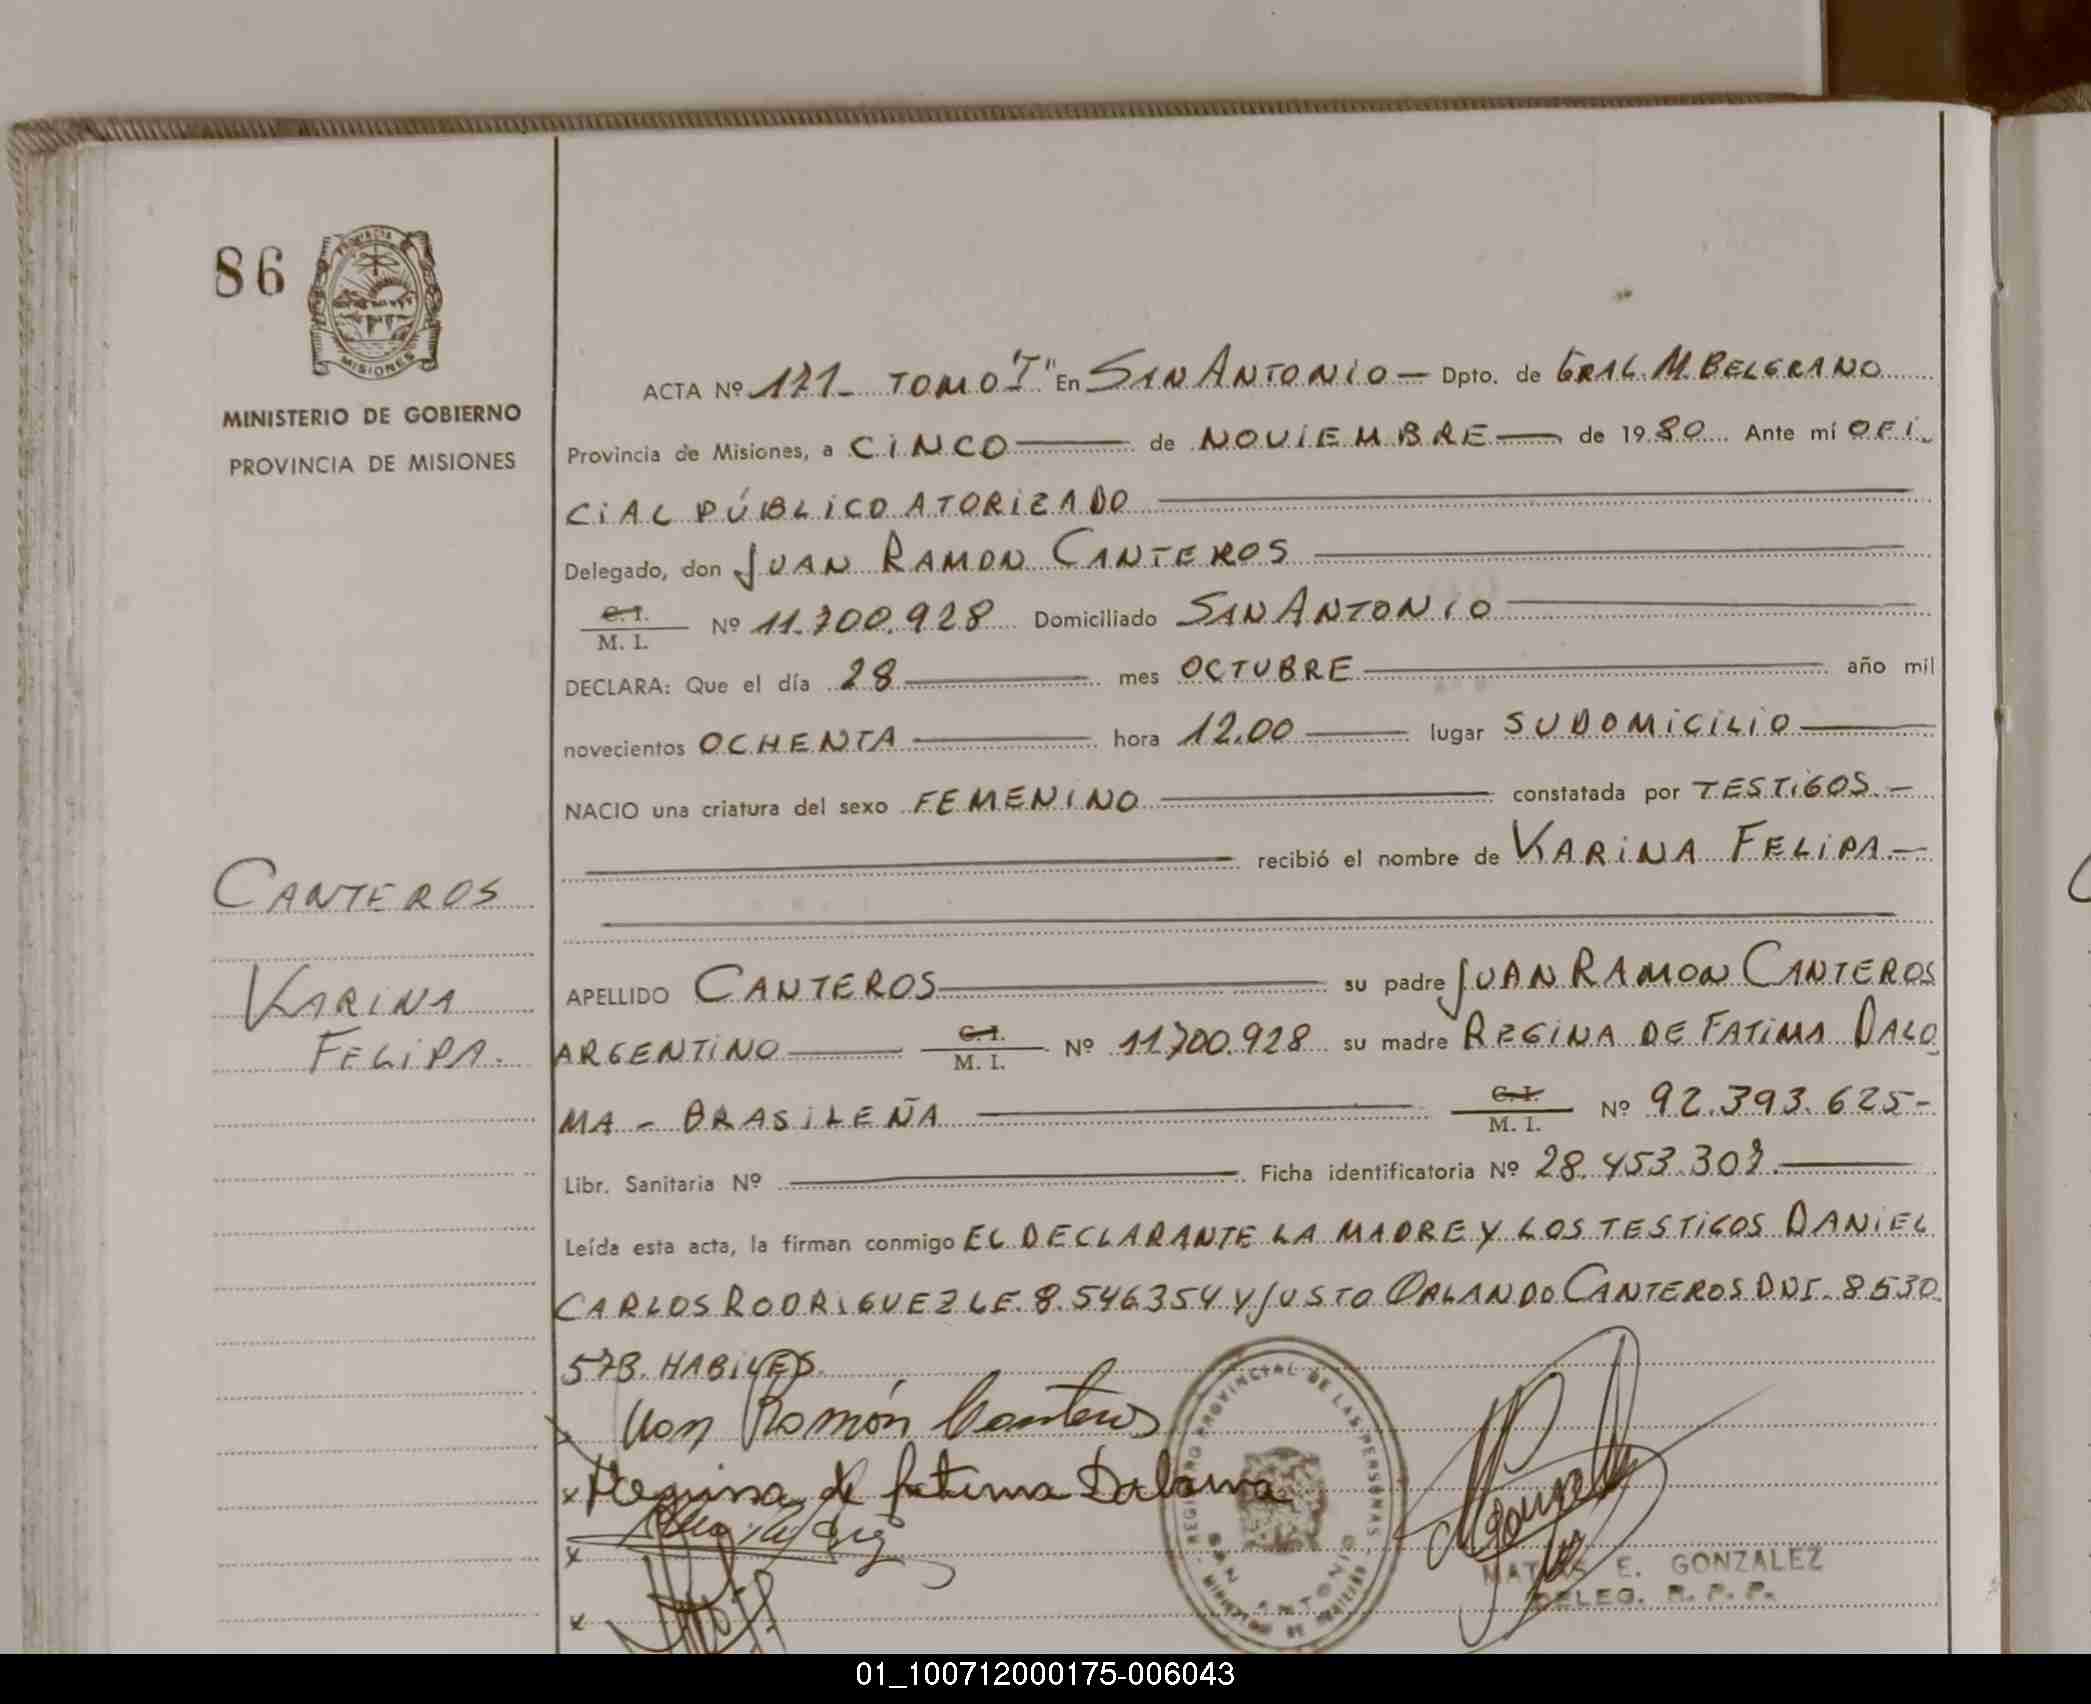 86
PROVINCIA
MISIONES
MINISTERIO DE GOBIERNO
PROVINCIA DE MISIONES
ACTA Nº 171- TOMO "I" En SAN ANTONIO — Dpto. de GRAL. M. BELGRANO
Provincia de Misiones, a CINCO — de NOVIEMBRE — de 1980 Ante mí OFI-
CIAL PÚBLICO ATORIZADO
Delegado, don JUAN RAMON CANTEROS
C. I. / M. I. Nº 11.700.928 Domiciliado SAN ANTONIO
DECLARA: Que el día 28 — mes OCTUBRE — año mil
novecientos OCHENTA — hora 12.00 — lugar SU DOMICILIO —
NACIO una criatura del sexo FEMENINO — constatada por TESTIGOS. —
— recibió el nombre de KARINA FELIPA. —
CANTEROS
KARINA
FELIPA.
APELLIDO CANTEROS — su padre JUAN RAMON CANTEROS
ARGENTINO — C. I. / M. I. Nº 11700.928 su madre REGINA DE FATIMA DALO_
MA - BRASILEÑA — C. I. / M. I. Nº 92.393.625-
Libr. Sanitaria Nº — Ficha identificatoria Nº 28.453.307. —
Leída esta acta, la firman conmigo EL DECLARANTE LA MADRE Y LOS TESTIGOS DANIEL
CARLOS RODRIGUEZ LE. 8.546354 Y JUSTO ORLANDO CANTEROS DNI. 8530.
573. HABILES.
Juan Ramón Canteros
x Regina de fatima Daloma
x
x
REGISTRO PROVINCIAL DE LAS PERSONAS
SAN ANTONIO
MATIAS E. GONZALEZ
DELEG. R. P. P.
01_100712000175-006043